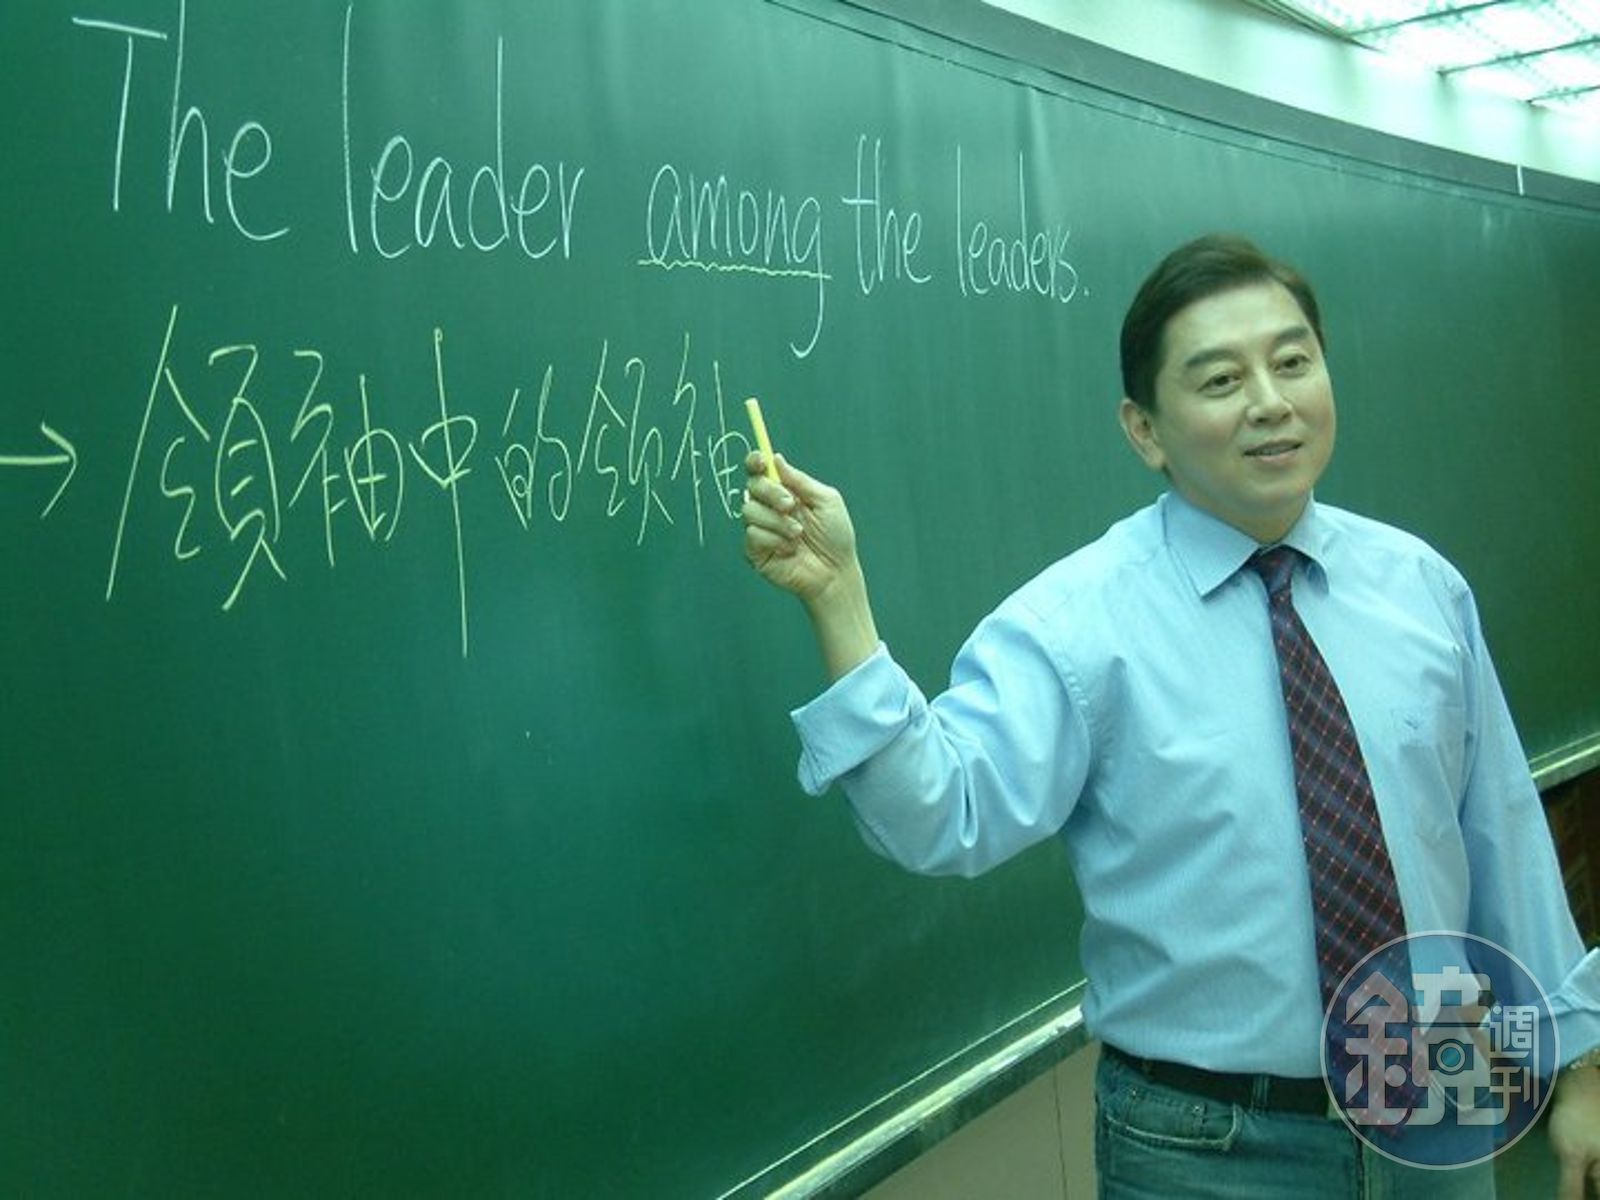 The leader among the leaders.
→領袖中的領袖
鏡週刊